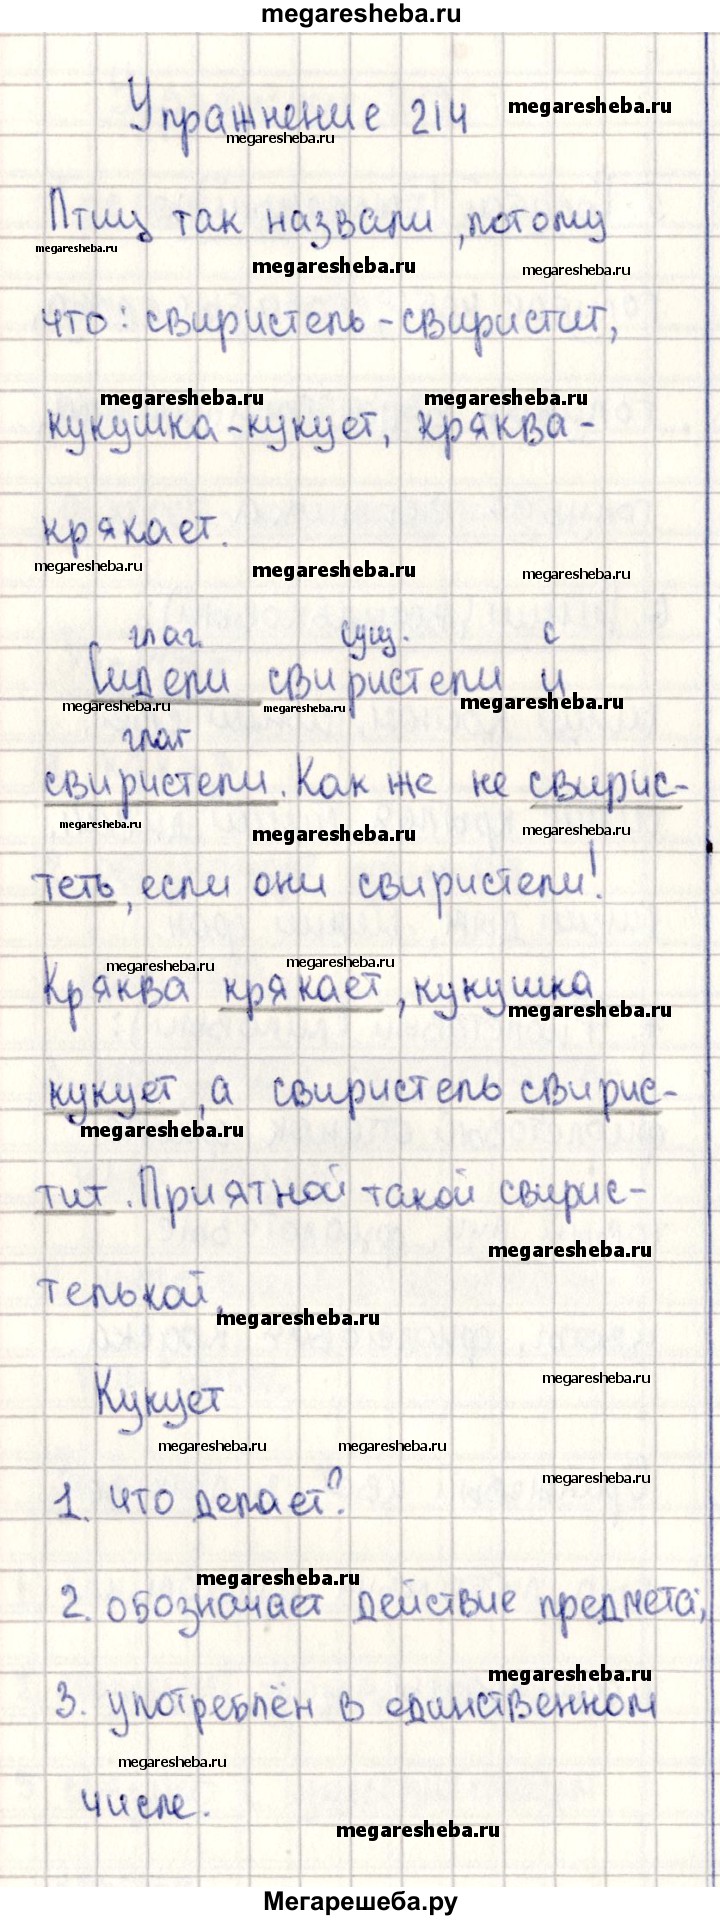 megaresheba.ru
Упражнение 214
megaresheba.ru
megaresheba.ru
Птиц так назвали, потому
megaresheba.ru
megaresheba.ru
megaresheba.ru
что: свиристель-свиристит,
megaresheba.ru
megaresheba.ru
кукушка-кукует, кряква-
крякает.
megaresheba.ru
megaresheba.ru
megaresheba.ru
глаг. сущ. с
Сидели свиристели и
megaresheba.ru
megaresheba.ru
megaresheba.ru
глаг
свиристели. Как же не свирис-
megaresheba.ru
megaresheba.ru
megaresheba.ru
теть, если они свиристели!
megaresheba.ru
megaresheba.ru
Кряква крякает, кукушка
megaresheba.ru
кукует, а свиристель свирис-
megaresheba.ru
тит. Приятной такой свирис-
megaresheba.ru
телькой.
megaresheba.ru
megaresheba.ru
Кукует
megaresheba.ru
megaresheba.ru
megaresheba.ru
1. что делает?
megaresheba.ru
2. обозначает действие предмета;
megaresheba.ru
3. употреблён в единственном
megaresheba.ru
числе.
megaresheba.ru
Мегарешеба.ру